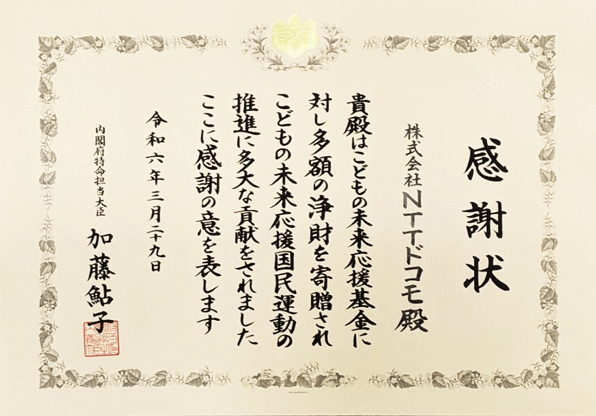 感謝状
株式会社NTTドコモ殿
貴殿はこどもの未来応援基金に
対し多額の浄財を寄贈され
こどもの未来応援国民運動の
推進に多大な貢献をされました
ここに感謝の意を表します
令和六年三月二十九日
内閣府特命担当大臣
加藤鮎子